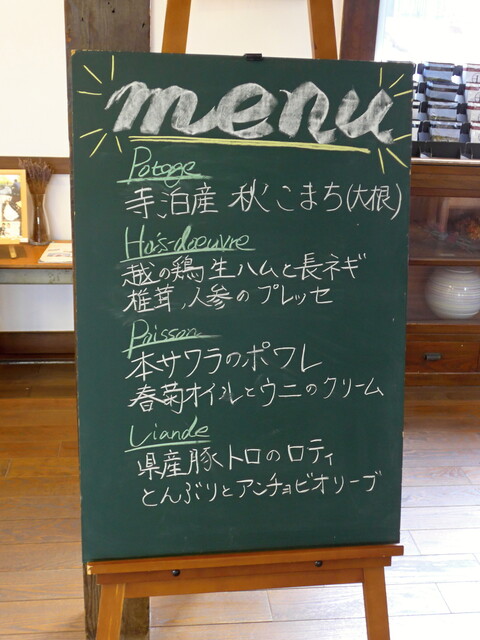 menu
Potage
寺泊産 秋こまち(大根)
Hors-doeuvre
越の鶏 生ハムと長ネギ
椎茸、人参のプレッセ
Poisson
本サワラのポワレ
春菊オイルとウニのクリーム
Viande
県産豚トロのロティ
とんぶりとアンチョビオリーブ